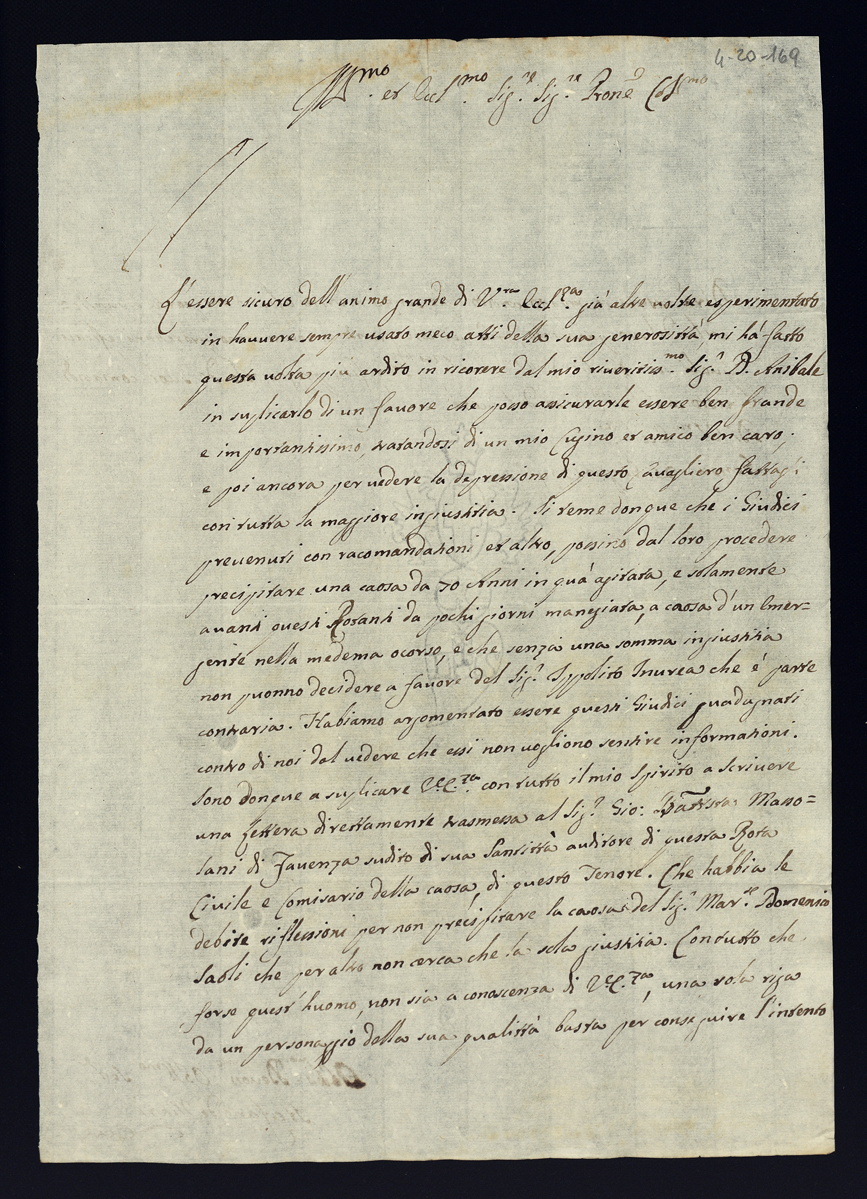 4-20-169
Ill.mo et Ecc.mo Sig.re Sig.re Prone Col.mo
L'essere sicuro dell'animo grande di V.ra Ecc.za già altre volte esperimentato
in havvere sempre usato meco atti della sua generosittà, mi hà fatto
questa volta più ardito in ricorere dal mio riveritiss.mo Sig.r D. Anibale
in suplicarlo di un favore che posso assicurarle essere ben grande
e importantissimo, tratandosi di un mio Cugino et amico ben caro,
e poi ancora per vedere la depressione di questo Cavagliero fattagli
con tutta la maggiore ingiustitia. Si teme donque che i Giudici
prevenuti con racomandationi et altro, possino dal loro procedere
precipitare una caosa da 70 Anni in quà agitata, e solamente
avanti questi Rotanti da pochi giorni manegiata, a caosa d'un Emer=
gente nella medema ocorso, e che senza una somma ingiustitia
non puonno decidere a favore del Sig.r Ippolito Invrea che è parte
contraria. Habiamo argomentato essere questi Giudici guadagnati
contro di noi dal vedere che essi non vogliono sentire informationi.
Sono donque a suplicare V.E.za con tutto il mio spirito a scrivere
una lettera direttamente trasmessa al Sig.r Gio: Battista Masso=
lani di Favenza sudito di sua Santittà auditore di questa Rota
Civile e Comisario della caosa, di questo Tenore. Che habbia le
debite riflessioni per non precipitare la caosa del Sig.r Mar.se Domenico
Saoli che per altro non cerca che la sola giustitia. Contutto che
forse quest'huomo, non sia a conoscenza di V.E.za, una sola riga
da un personaggio della sua qualittà basta per conseguire l'intento